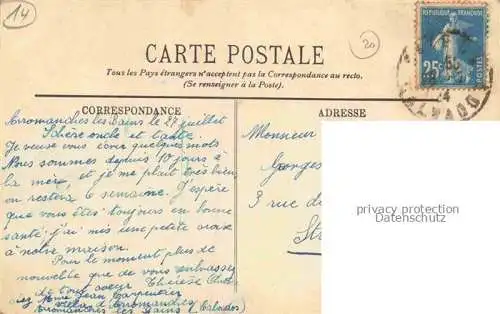 14
20
RÉPUBLIQUE FRANÇAISE
25c
POSTES
CALVADOS
CARTE POSTALE
Tous les Pays étrangers n'acceptent pas la Correspondance au recto.
(Se renseigner à la Poste).
CORRESPONDANCE
ADRESSE
Arromanches les Bains le 27 juillet
Chère oncle et tante
Je veuse vous écrir quelques mots
Nous sommes depuis 10 jours à
la mère, et je me plait très bien
on restera 6 semaine. J'espère
que vous êtes toujours en bonne
santé j'ai mis une petite croix
à notre maison.
Pour le moment plus de
nouvelle que de vous embrasser
de tout coeur Thérèse
chez Mme Jean Carpentier
Villa d'Arromanches
Arromanches les Bains (Calvados)
Monsieur
Georges
3 rue de
St
privacy protection
Datenschutz